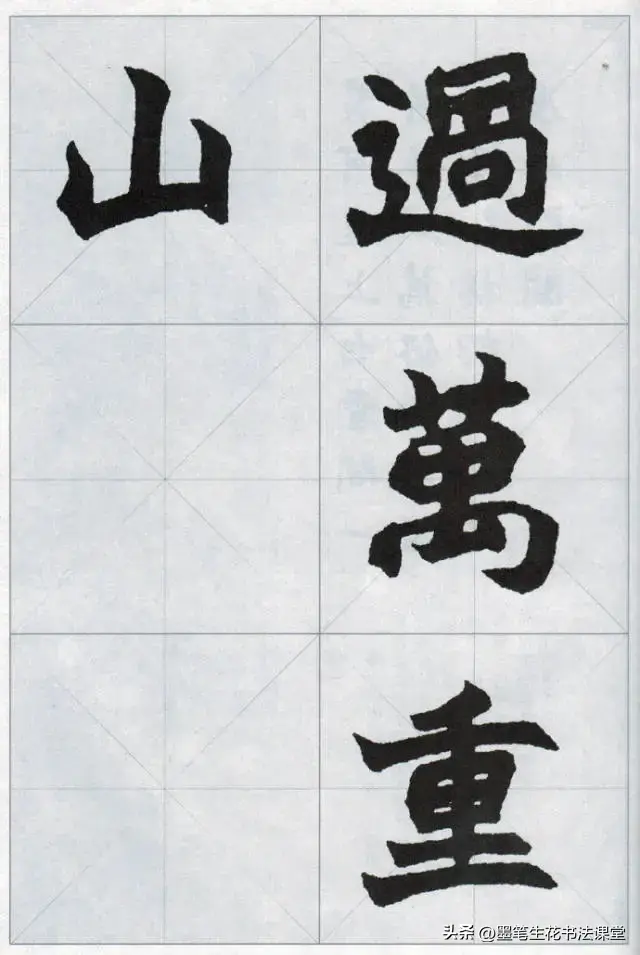 過萬重
山
头条 @墨笔生花书法课堂